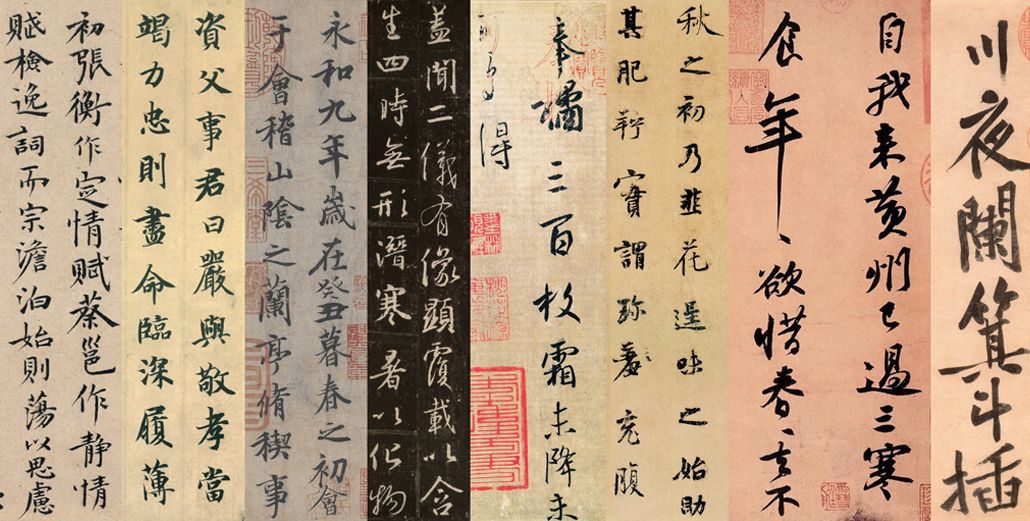 川夜闌箕斗插
自我来黄州已過三寒
食年、欲惜春、去不
秋之初乃韭花逞味之始助
其肥羜實謂珍羞充腹
奉橘三百枚霜未降未
可多得
盖聞二儀有像顯覆載以含
生四時無形潛寒暑以化物
永和九年歲在癸丑暮春之初會
于會稽山陰之蘭亭脩稧事
資父事君曰嚴與敬孝當
竭力忠則盡命臨深履薄
初張衡作定情賦蔡邕作静情
賦檢逸詞而宗澹泊始則蕩以思慮